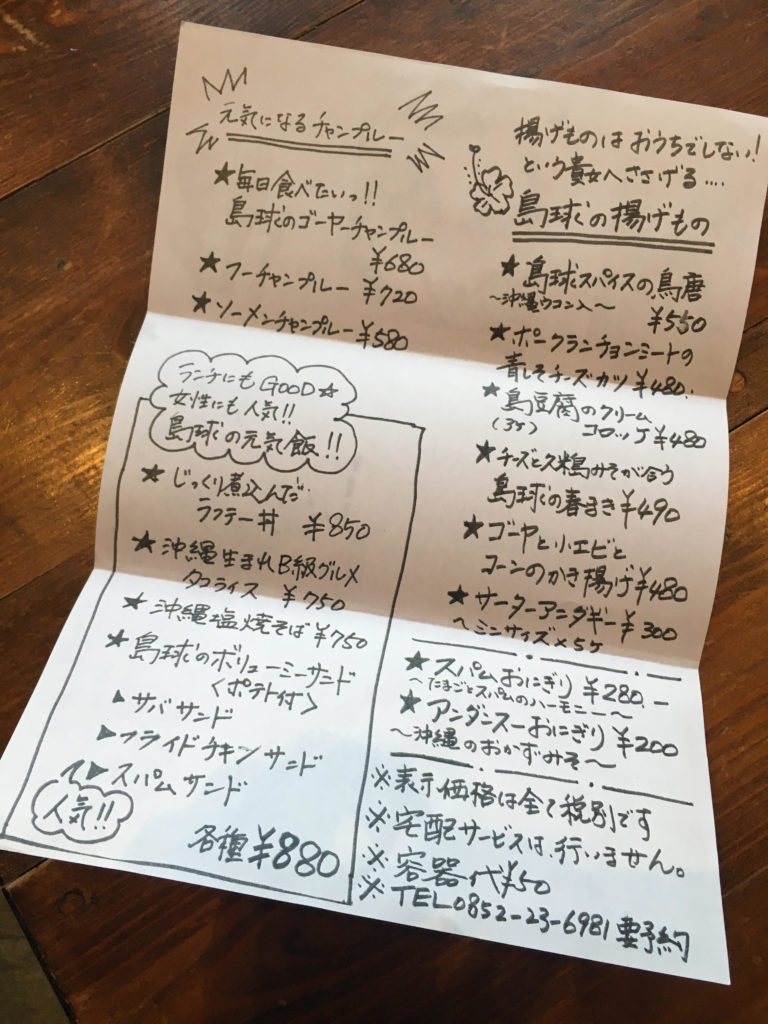 元気になるチャンプルー
★毎日食べたいっ!!
島球のゴーヤーチャンプルー
¥680
★フーチャンプルー ¥720
★ソーメンチャンプルー ¥580
ランチにもGOOD☆
女性にも人気!!
島球の元気飯!!
★じっくり煮込んだ
ラフテー丼 ¥850
★沖縄生まれB級グルメ
タコライス ¥750
★沖縄塩焼そば ¥750
★島球のボリューミーサンド
<ポテト付>
▶サバサンド
▶フライドチキンサンド
▶スパムサンド
人気!!
各種¥880
揚げものはおうちでしない!
という貴女へささげる....
島球の揚げもの
★島球スパイスの鳥唐
~沖縄ウコン入~ ¥550
★ポークランチョンミートの
青しそチーズカツ ¥480.
★島豆腐のクリーム
(3ケ) コロッケ ¥480
★チーズと久米島みそが合う
島球の春まき ¥490
★ゴーヤと小エビと
コーンのかき揚げ ¥480
★サーターアンダギー ¥300
~ミニサイズ×5ケ
★スパムおにぎり ¥280.-
~たまごとスパムのハーモニー~
★アンダンスーおにぎり ¥200
~沖縄のおかずみそ~
※表示価格は全て税別です
※宅配サービスは、行いません。
※容器代¥50
※TEL0852-23-6981要予約